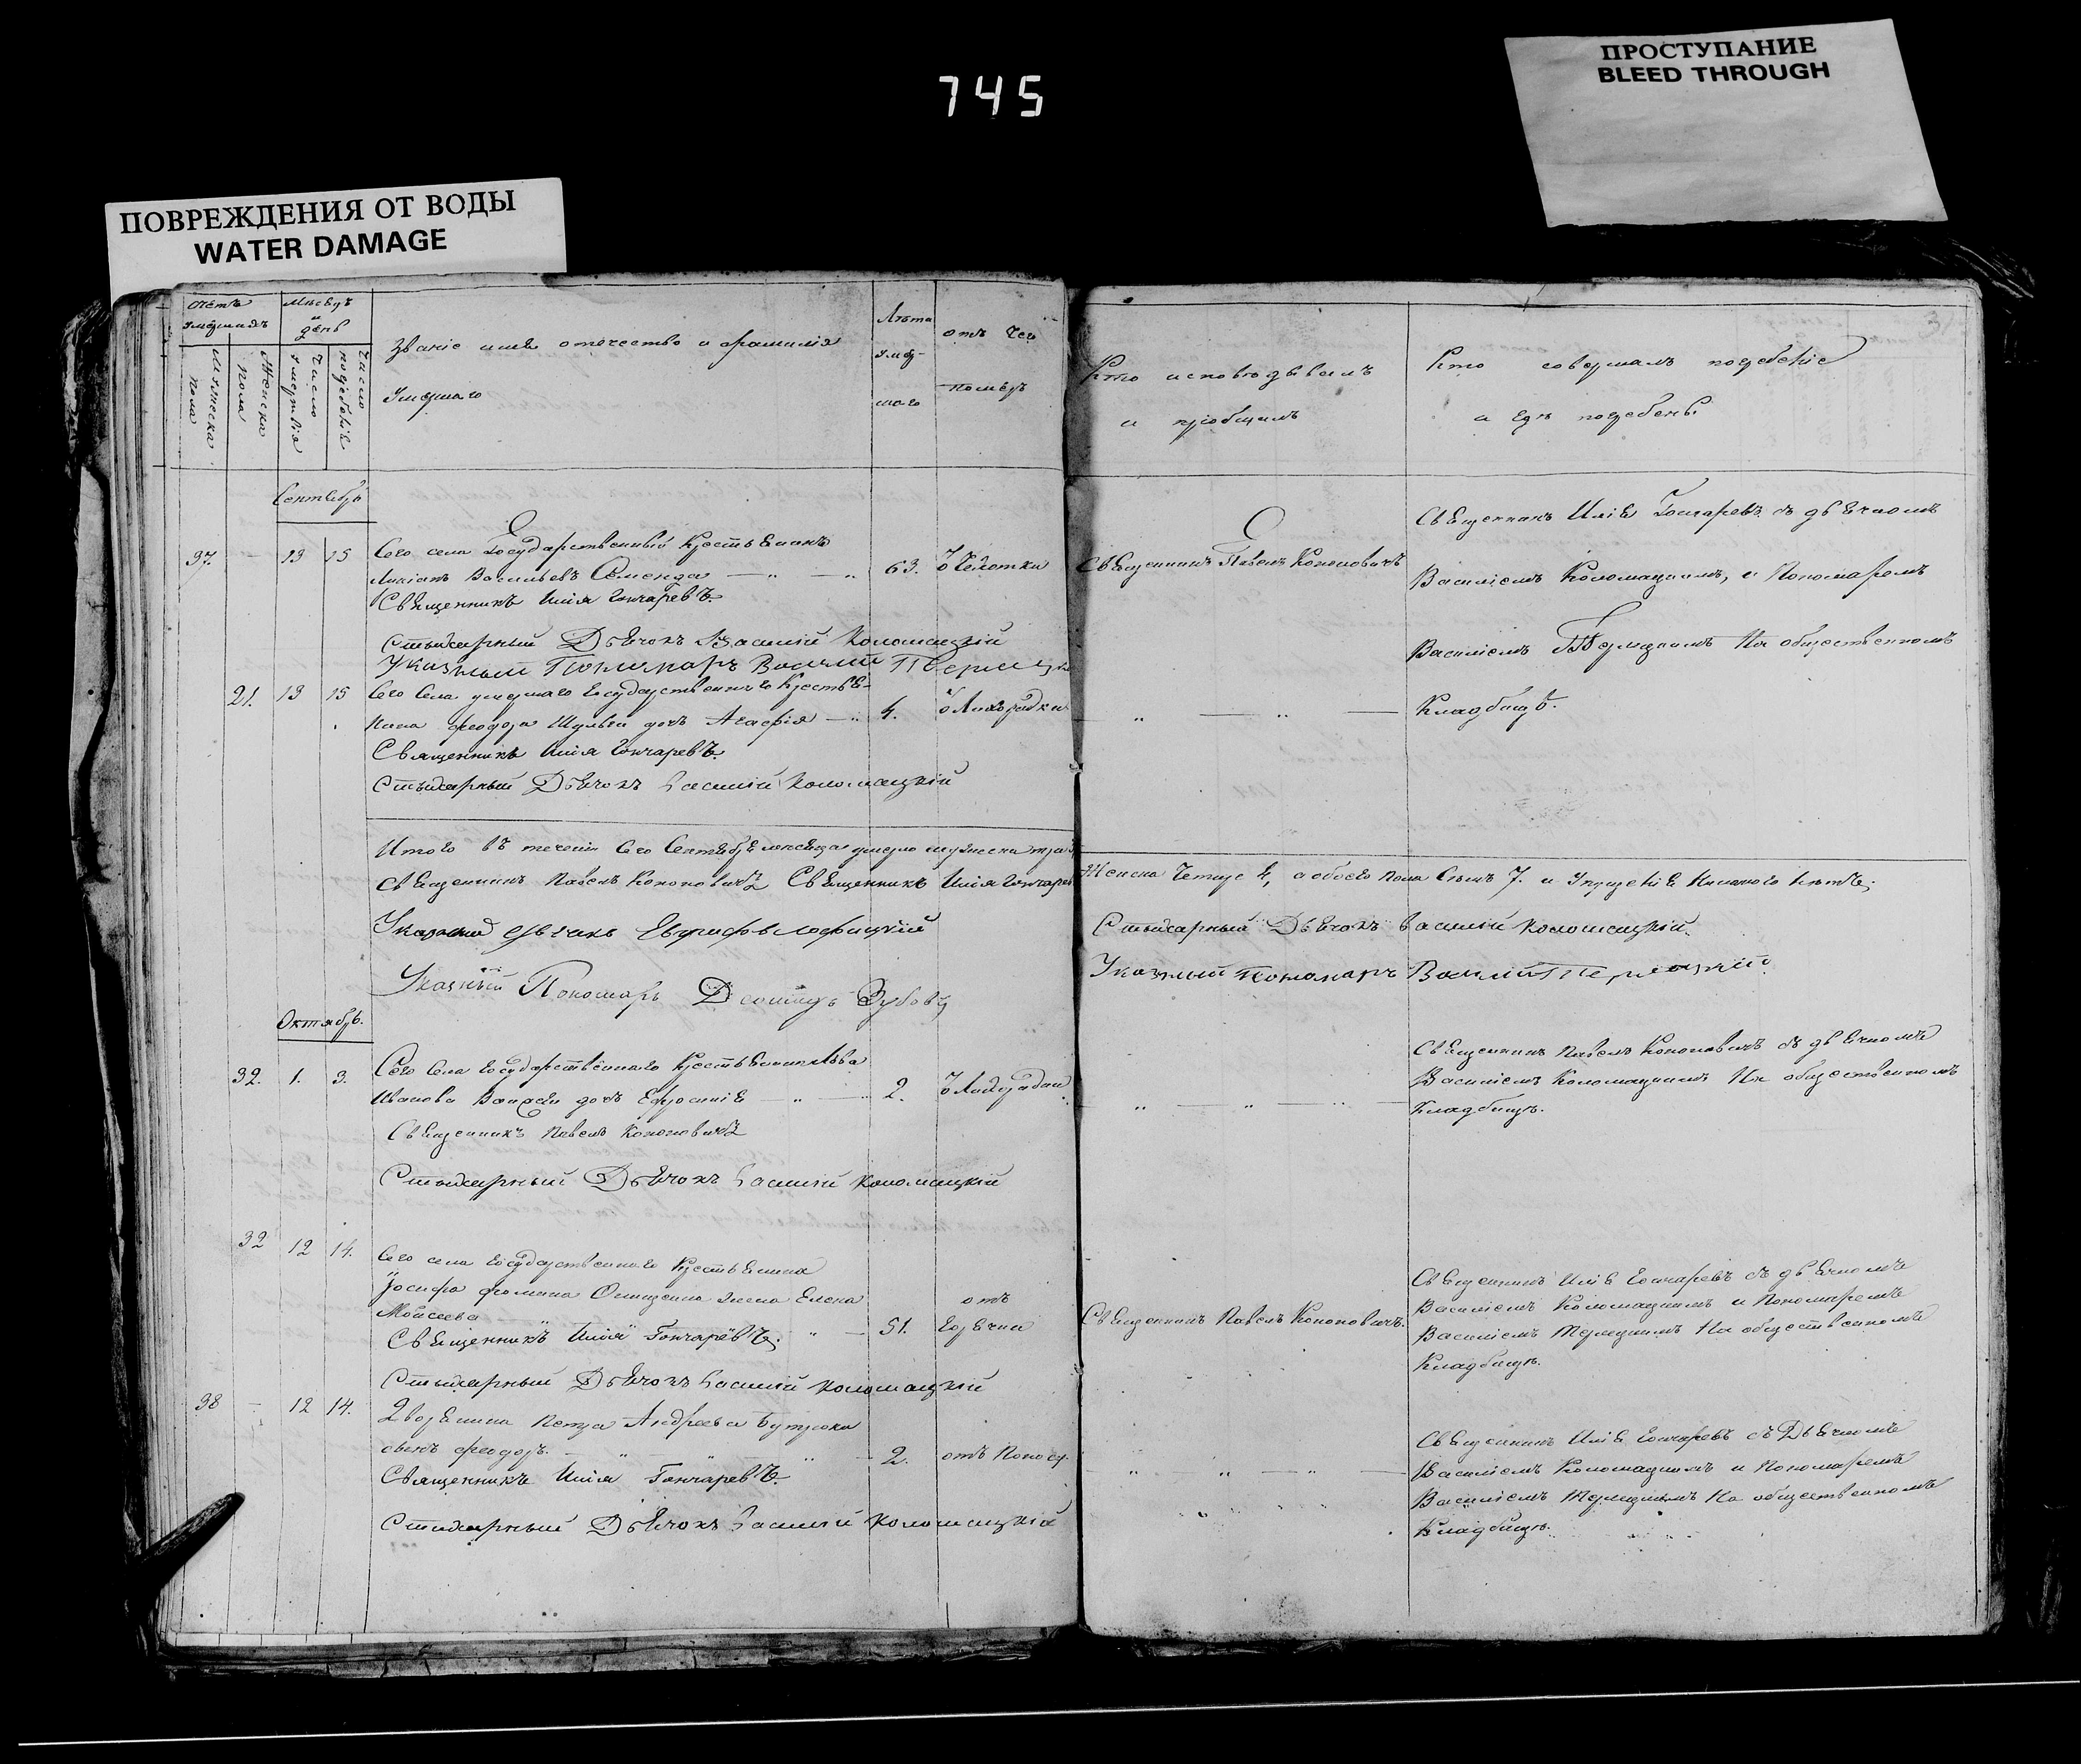 745
ПРОСТУПАНИЕ
BLEED THROUGH
ПОВРЕЖДЕНИЯ ОТ ВОДЫ
WATER DAMAGE
Счетъ умершихъ
Мужеска пола
Женска пола
Мѣсяцъ и день
Число умертвія
Число погребенія
Званіе имя отечество и фамилія
Умершаго
Лѣта умершаго
отъ чего померъ
Кто исповѣдывалъ
и пріобщалъ
Кто совершалъ погребеніе
и гдѣ погребены
Сентябрь
37. – 13 15
Сего села Государственный Крестьянинъ
Васильевъ 63.
Священникъ Илія Гончаревъ.
Стихарный Дьячокъ Василій Коломацкій
Указный Пономарь Василій
Священникъ Павелъ Кононовичъ
Священникъ Илія Гончаревъ съ дьячкомъ
Василіемъ Коломацкимъ, и Пономаремъ
Василіемъ На общественномъ
Кладбищѣ.
21. 13 15
Сего Села умершаго Государственнаго Крестья-
нина Феодора дочь Агафія 4. Лихорадки
Священникъ Илія Гончаревъ.
Стихарный Дьячокъ Василій Коломацкій
Итого въ теченіи Сего Сентября мѣсяца умерло мужеска три
Женска Четыре 4, а обоего пола Семь 7.
Священникъ Павелъ Кононовичъ Священникъ Илія Гончаревъ
Стихарный Дьячокъ Василій Коломацкій.
Указный дьячокъ
Указный Пономарь Василій
Указный Пономарь
Октябрь.
32. 1. 3.
Сего Села Государственнаго Крестьянина Льва
Иванова дочь Ефросинія 2.
Священникъ Павелъ Кононовичъ
Стихарный Дьячокъ Василій Коломацкій
Священникъ Павелъ Кононовичъ съ дьячкомъ
Василіемъ Коломацкимъ На общественномъ
Кладбищѣ.
32 12 14.
Сего села Государственнаго Крестьянина
Іосифа Фомина жена Елена
Моисеева 51. отъ Горячки
Священникъ Илія Гончаревъ.
Стихарный Дьячокъ Василій Коломацкій
Священникъ Павелъ Кононовичъ.
Священникъ Илія Гончаревъ съ дьячкомъ
Василіемъ Коломацкимъ и Пономаремъ
Василіемъ На общественномъ
Кладбищѣ.
38 – 12 14.
Дворянина Петра Андреева
сынъ Феодоръ. 2. отъ Поносу.
Священникъ Илія Гончаревъ.
Стихарный Дьячокъ Василій Коломацкій
Священникъ Илія Гончаревъ съ Дьячкомъ
Василіемъ Коломацкимъ и Пономаремъ
Василіемъ На общественномъ
Кладбищѣ.